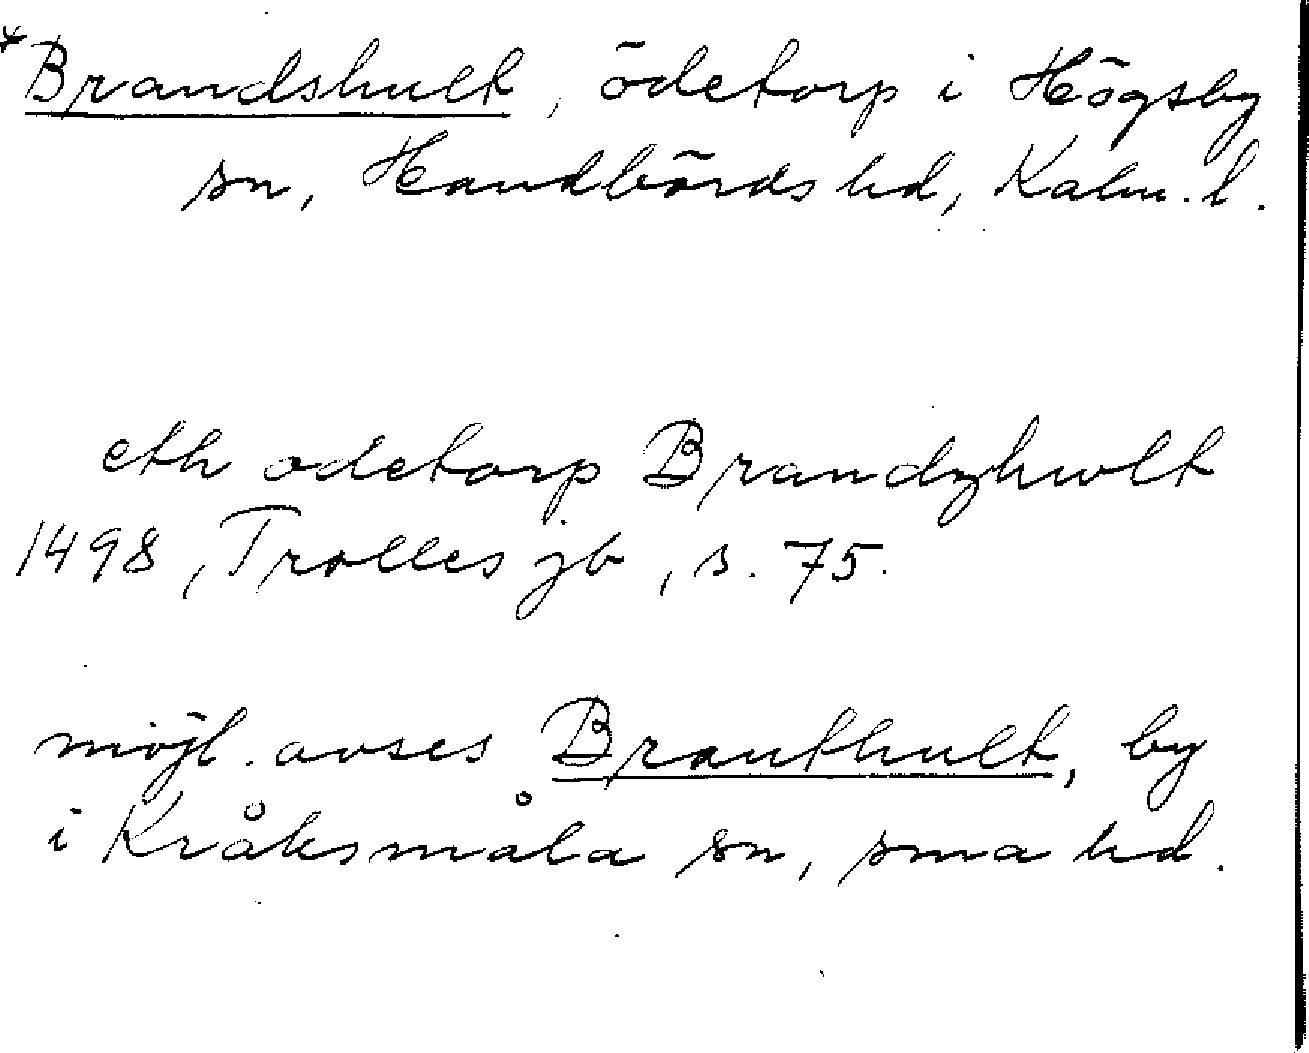 *Brandshult, ödetorp i Högsby
sn, Handbörds hd, Kalm. l.
eth ödetorp Brandzhwlt
1498, Trolles jb, s. 75.
möjl. avses Branthult, by
i Kråksmåla sn, sma hd.